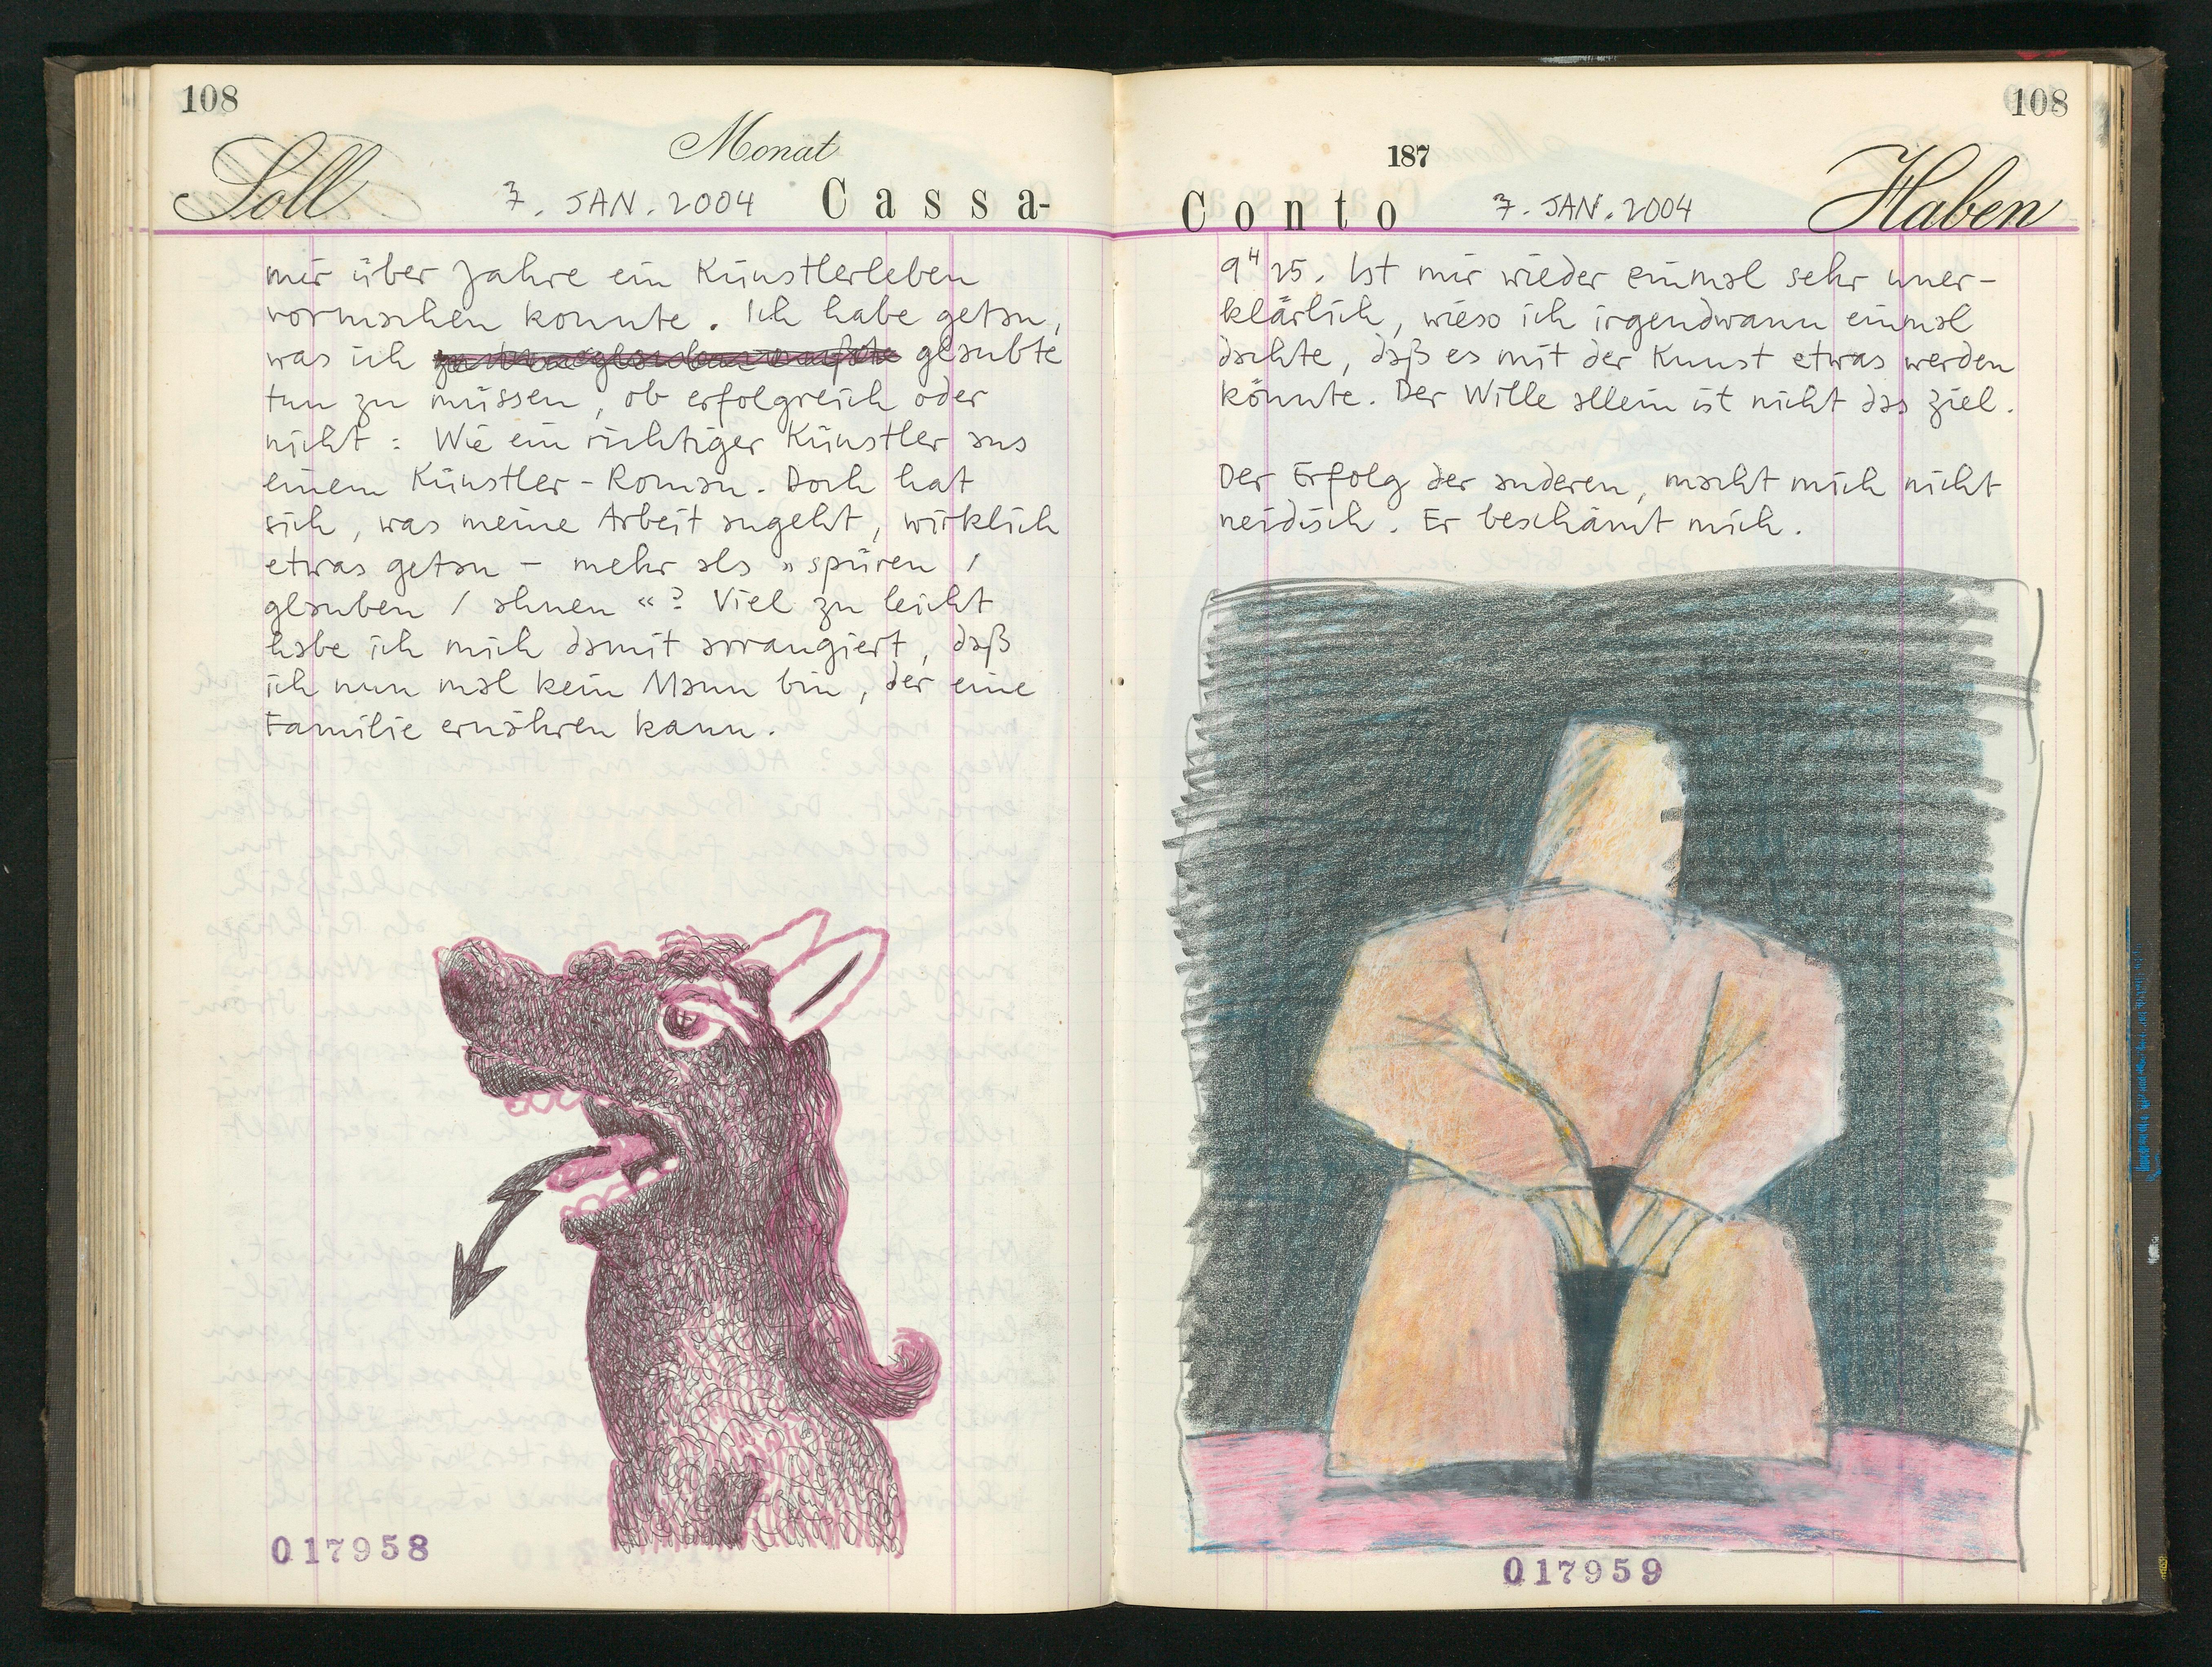 108
Monat
Soll
7. JAN. 2004
Cassa-
mir über Jahre ein Künstlerleben
vormachen konnte. Ich habe getan,
was ich glaubte
tun zu müssen, ob erfolgreich oder
nicht: Wie ein richtiger Künstler aus
einem Künstler-Roman. Doch hat
sich, was meine Arbeit angeht, wirklich
etwas getan – mehr als »spüren /
glauben / ahnen«? Viel zu leicht
habe ich mich damit arrangiert, daß
ich nun mal kein Mann bin, der eine
Familie ernähren kann.
017958
108
187
Conto
7. JAN. 2004
Haben
9H 25. Ist mir wieder einmal sehr uner-
klärlich, wieso ich irgendwann einmal
dachte, daß es mit der Kunst etwas werden
könnte. Der Wille allein ist nicht das Ziel.
Der Erfolg der anderen, macht mich nicht
neidisch. Er beschämt mich.
017959